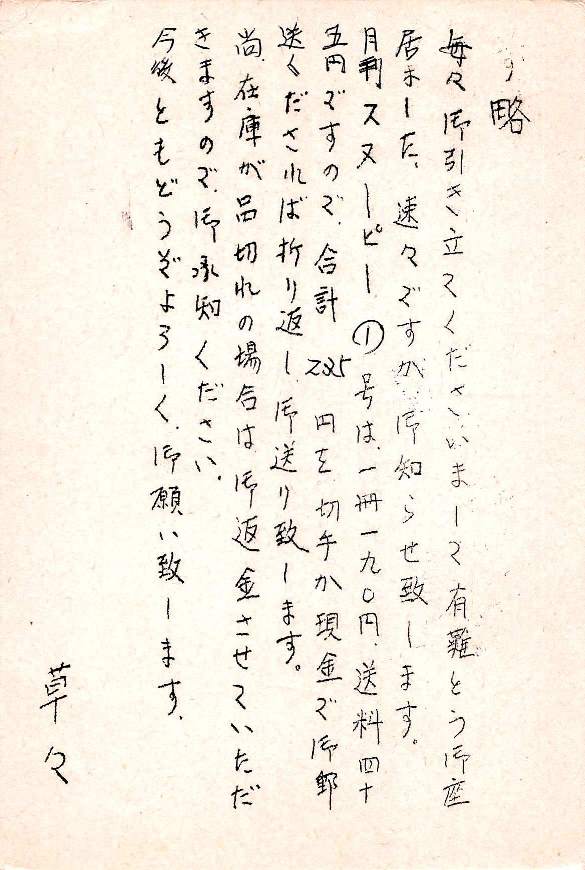 略
毎々御引き立てくださいまして有難とう御座
居ました、速々ですが、御知らせ致します。
月刊スヌーピー①号は、一冊一九〇円、送料四十
五円ですので、合計 235 円を切手か現金で御郵
送くだされば折り返し、御送り致します。
尚、在庫が品切れの場合は、御返金させていただ
きますので、御承知ください、
今後ともどうぞよろしく、御願い致します、
草々